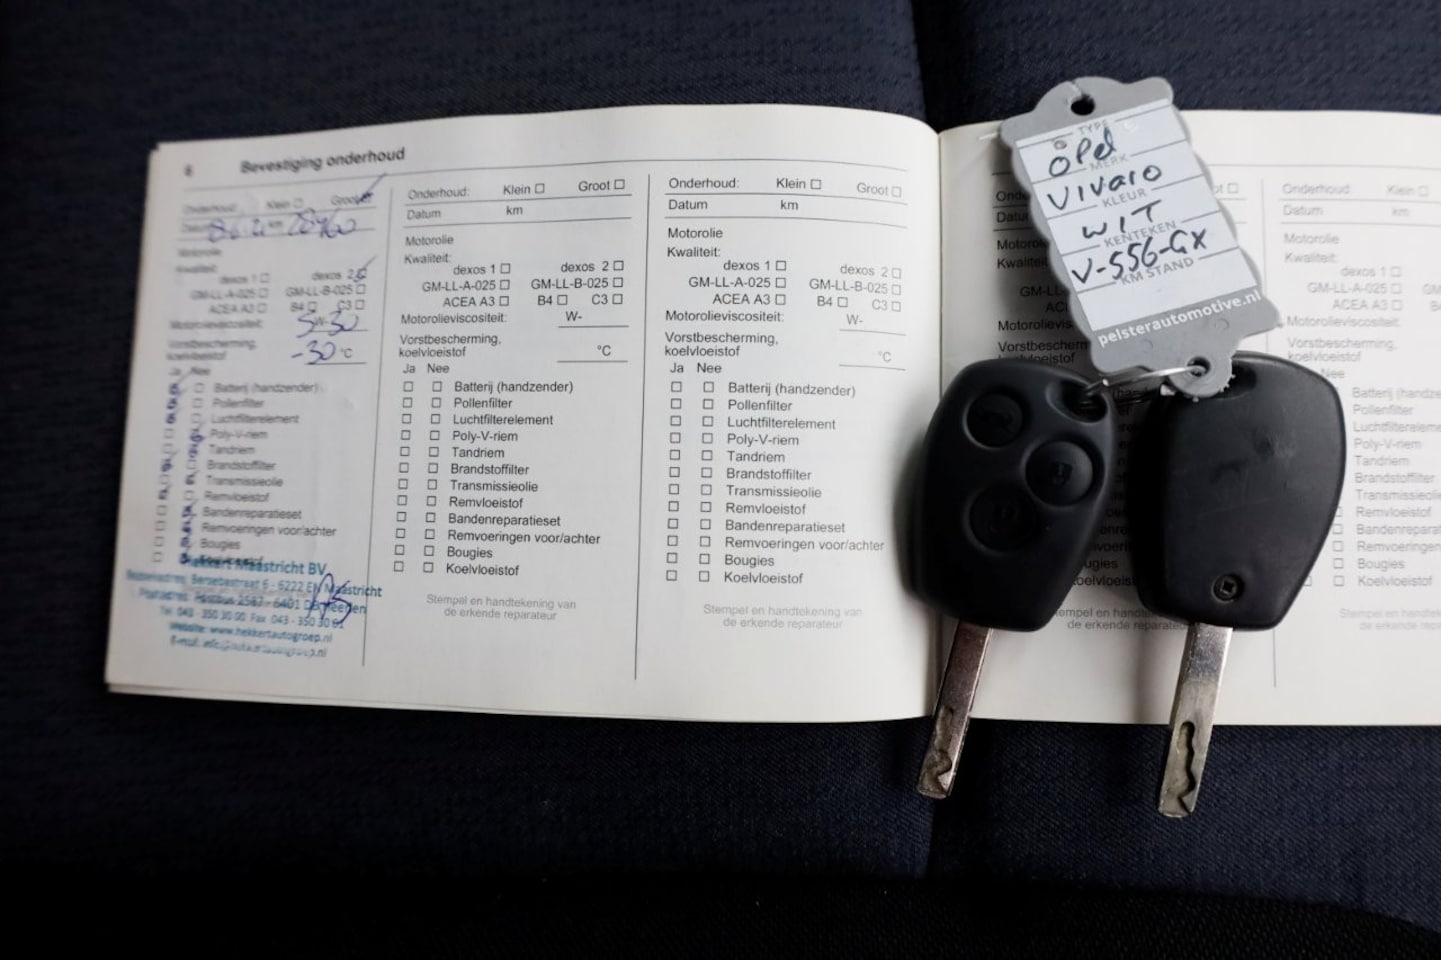 6 Bevestiging onderhoud
Onderhoud: Klein Groot
km
Motorolie
Kwaliteit:
dexos 1 dexos 2
GM-LL-A-025 GM-LL-B-025
ACEA A3 B4 C3
Motorolieviscositeit: 5W-30
Vorstbescherming,
koelvloeistof -30 °C
Ja Nee
Batterij (handzender)
Pollenfilter
Luchtfilterelement
Poly-V-riem
Tandriem
Brandstoffilter
Transmissieolie
Remvloeistof
Bandenreparatieset
Remvoeringen voor/achter
Bougies
Maastricht BV
6 - 6222 EN Maastricht
Postbus 2587 - 6401 Heerlen
Tel. 043 - 350 30 00 Fax 043 - 350 30 61
Website: www.hekkertautogroep.nl
Onderhoud: Klein Groot
Datum km
Motorolie
Kwaliteit:
dexos 1 dexos 2
GM-LL-A-025 GM-LL-B-025
ACEA A3 B4 C3
Motorolieviscositeit: W-
Vorstbescherming,
koelvloeistof °C
Ja Nee
Batterij (handzender)
Pollenfilter
Luchtfilterelement
Poly-V-riem
Tandriem
Brandstoffilter
Transmissieolie
Remvloeistof
Bandenreparatieset
Remvoeringen voor/achter
Bougies
Koelvloeistof
Stempel en handtekening van
de erkende reparateur
Onderhoud: Klein Groot
Datum km
Motorolie
Kwaliteit:
dexos 1 dexos 2
GM-LL-A-025 GM-LL-B-025
ACEA A3 B4 C3
Motorolieviscositeit: W-
Vorstbescherming,
koelvloeistof °C
Ja Nee
Batterij (handzender)
Pollenfilter
Luchtfilterelement
Poly-V-riem
Tandriem
Brandstoffilter
Transmissieolie
Remvloeistof
Bandenreparatieset
Remvoeringen voor/achter
Bougies
Koelvloeistof
Stempel en handtekening van
de erkende reparateur
TYPE
Opel
MERK
Vivaro
KLEUR
WIT
KENTEKEN
V-556-GX
KM STAND
pelsterautomotive.nl
de erkende reparateur
Onderhoud: Klein
Datum km
Motorolie
Kwaliteit:
dexos 1
GM-LL-A-025
ACEA A3
Motorolieviscositeit:
Vorstbescherming,
koelvloeistof
Nee
Pollenfilter
Poly-V-riem
Tandriem
Brandstoffilter
Remvloeistof
Bougies
Koelvloeistof